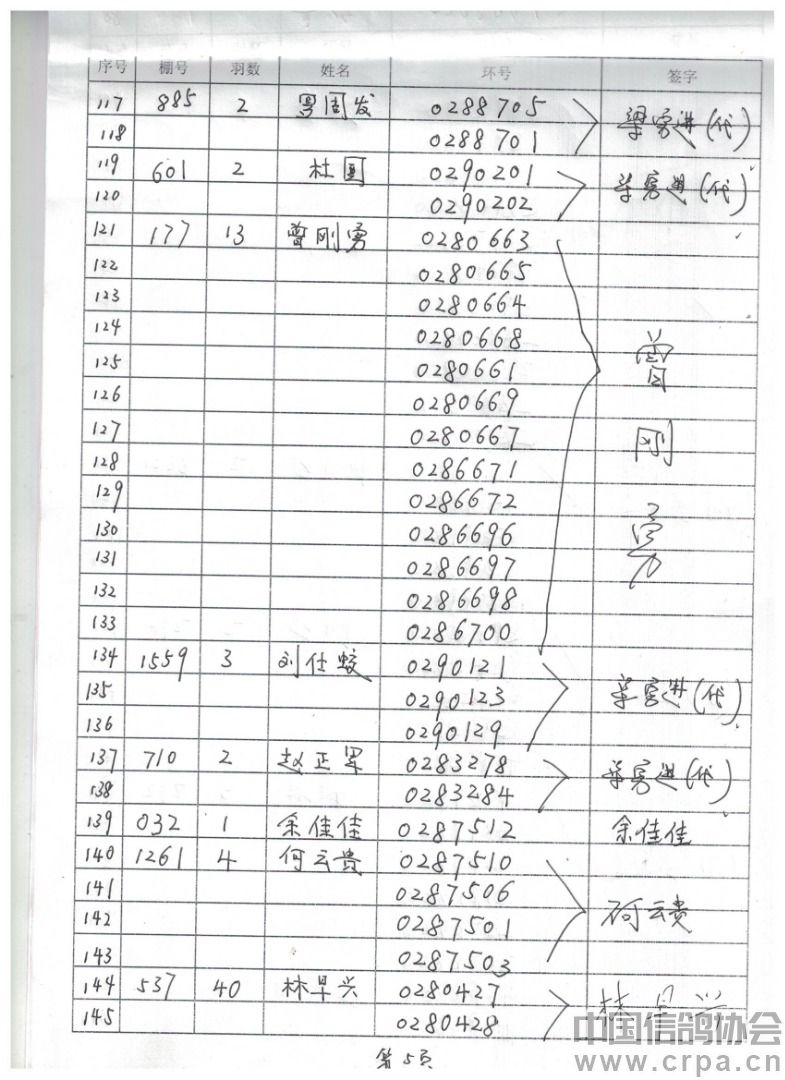 序号 棚号 羽数 姓名 环号 签字
117 885 2 罗周发 0288705
118 0288701
119 601 2 杜 0290201
120 0290202
121 177 13 曾刚勇 0280663
122 0280665
123 0280664
124 0280668
125 0280661
126 0280669
127 0280667
128 0286671
129 0286672
130 0286696
131 0286697
132 0286698
133 0286700
曾刚勇
134 1559 3 刘仕蛟 0290121
135 0290123 (代)
136 0290129
137 710 2 赵正军 0283278
138 0283284 (代)
139 032 1 余佳佳 0287512 余佳佳
140 1261 4 何云贵 0287510
141 0287506
142 0287501 何云贵
143 0287503
144 537 40 林早兴 0280427 林早兴
145 0280428
第5页
中国信鸽协会
www.crpa.cn